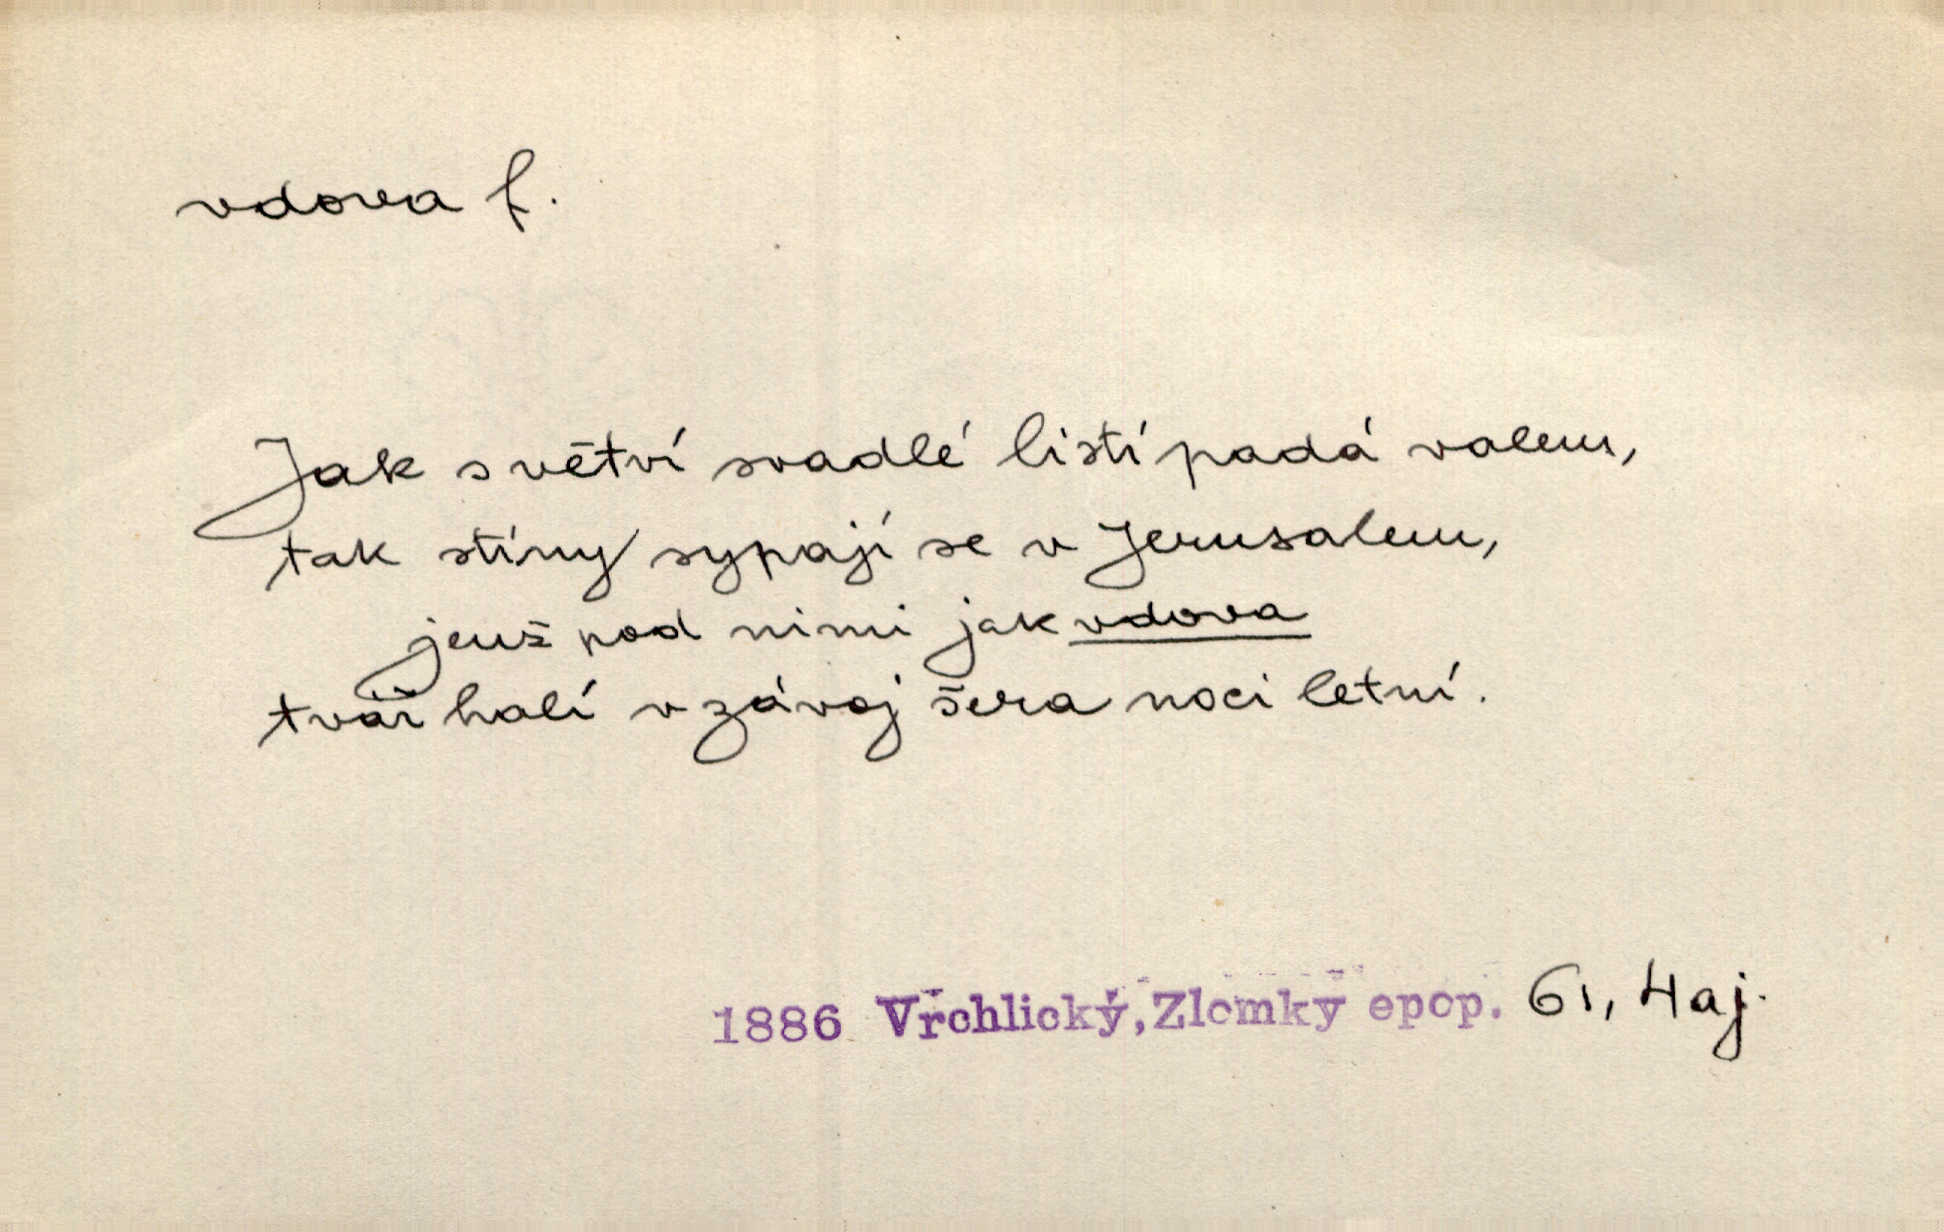 vdova f.
Jak s větví svadlé listí padá valem,
tak stíny sypají se v Jerusalem,
jenž pod nimi jak vdova
tvář halí v závoj šera noci letní.
1886 Vrchlický, Zlomky epop. 61, Haj.